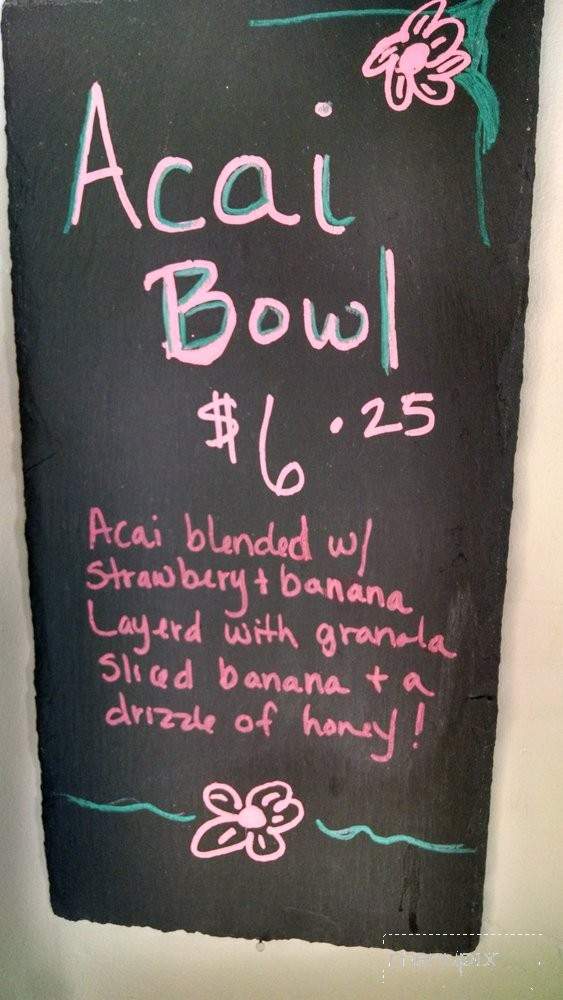 Acai
Bowl
$6.25
Acai blended w/
Strawbery + banana
Layerd with granola
Sliced banana + a
drizzle of honey!